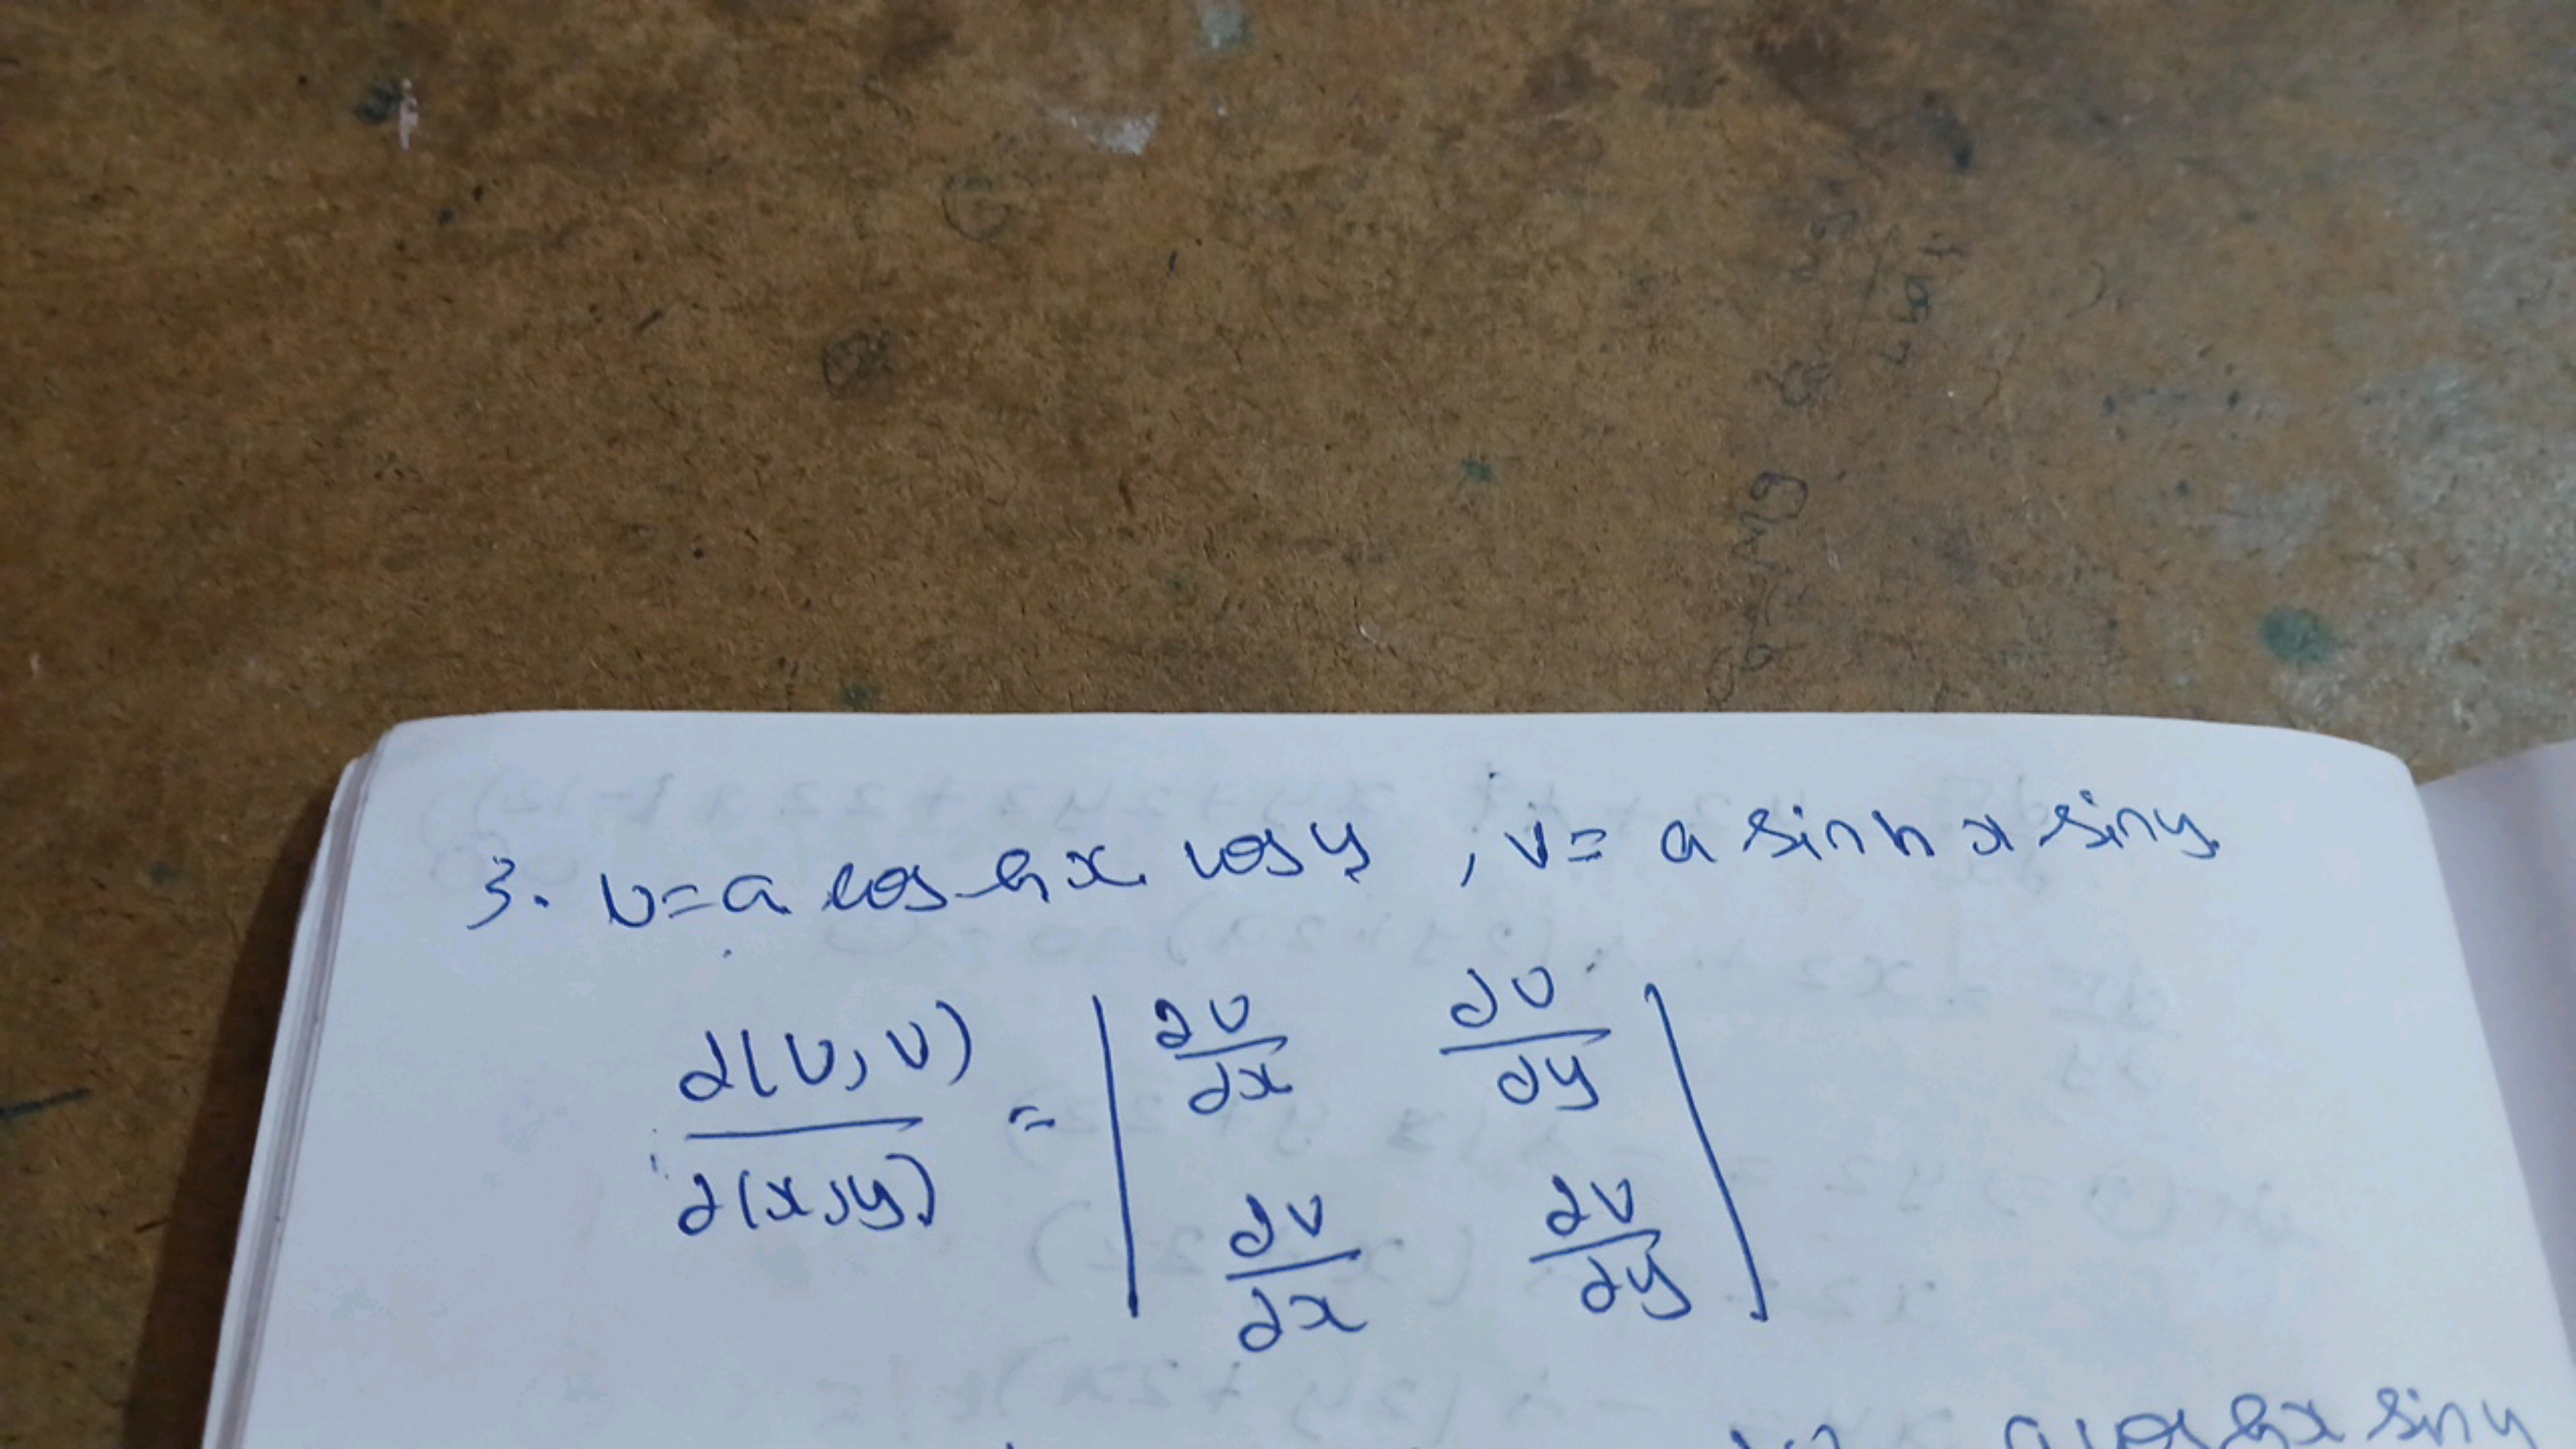 3. u = a cos hx cos y , v = a sin h x sin y
∂(u, v) / ∂(x, y) = | ∂u/∂x ∂u/∂y |
| ∂v/∂x ∂v/∂y |
a cos hx sin y